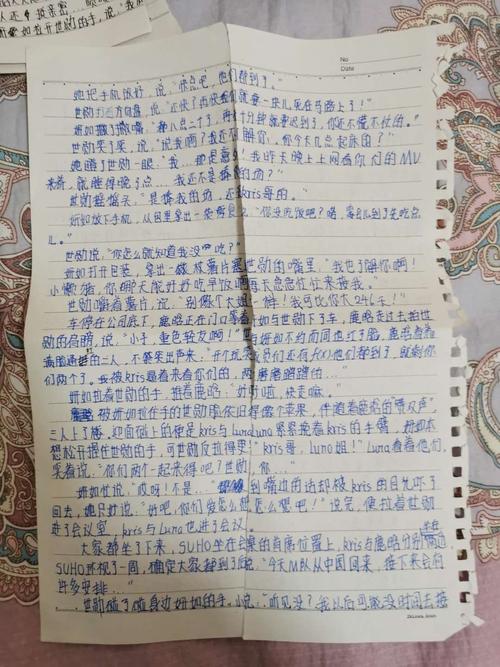 No
Date
她把手机放好，说，"快点吧，他们都到了。"
世勋打方向盘，说，"还快？再快我们就要一块儿死在马路上了！"
妍如撇了撇嘴，"都八点二十了，再十分钟就要迟到了，你还不慌不忙的。"
世勋笑了笑，"说我啊？我还没说你，你今天几点起床的？"
她瞪了世勋一眼，"我…那是意外！我昨天晚上上网看你们的MV
来着，就睡得晚了点…我还不是捧你的场？"
世勋摇摇头，"是捧我的场，还有kris哥的。"
妍如放下手机，从包里拿出一袋 "你没吃饭吧？喏，等会儿到了先吃点
儿。"
世勋说，"你怎么就知道我没吃？"
妍如打开包装，拿出一破片薯片塞世勋的嘴里，"我也了解你啊！
小懒猪，你哪天你好好吃早饭啊每天急急忙忙来接我。"
世勋嚼着薯片，说，"别像个大姐一样！我可比你大246天！"
车停在公司底下，鹿晗正在门口等着妍如与世勋下了车，鹿晗走过去拍世
勋的肩膀，说，"小子，重色轻友啊！"世勋与妍如不约而同也红了脸，鹿晗看着
满脸通红的二人，不禁笑出声来，"开个玩笑我们还有f(x)他们都到了，就剩你
们两个了。我被kris逼着来看你们的，两
妍如拉着世勋的手，推着鹿晗，"好啦，快走嘛。"
被妍如拉住手的世勋脸依旧得像个苹果，伴随着鹿晗的"啧叹声"，
三人上了楼。迎面碰上的便是kris与Luna，Luna紧紧挽着kris的手臂，妍如本
想松开握住世勋的手，可世勋反拉得更 "kris哥，Luna姐！"Luna看着他们，
笑着说，"你们两个一起来得吧？世勋，你…"
妍如忙说，"哎呀！不是…"到嘴边的话却被kris的目光吓了
回去，她只好说，"好吧，你们爱怎么想怎么想吧！"说完，便拉着世勋
进了会议室，kris与Luna也进了会议
大家都坐了下来，SUHO坐在会议桌的首席位置上，kris与鹿晗分别坐在两边
SUHO环视了一周，确定大家都到了后说，"今天M队从中国回来，接下来会有
许多安排…"
世勋碰了碰身边妍如的手，小说，"听见没？我以后可能没时间去接